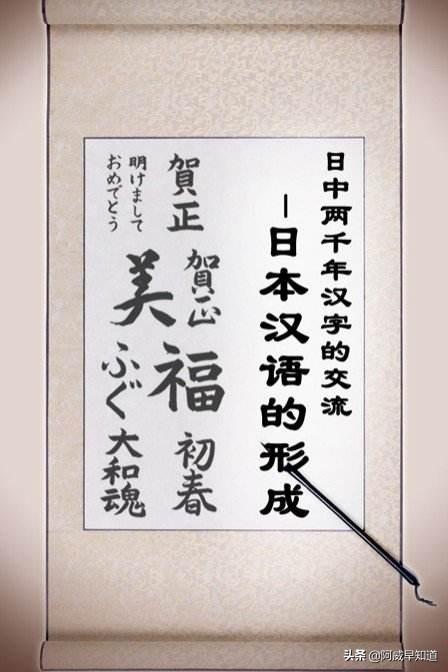 日中两千年汉字的交流
—日本汉语的形成
賀正
賀正
福
初春
明けまして
おめでとう
美
ふぐ
大和魂
头条 @阿威早知道